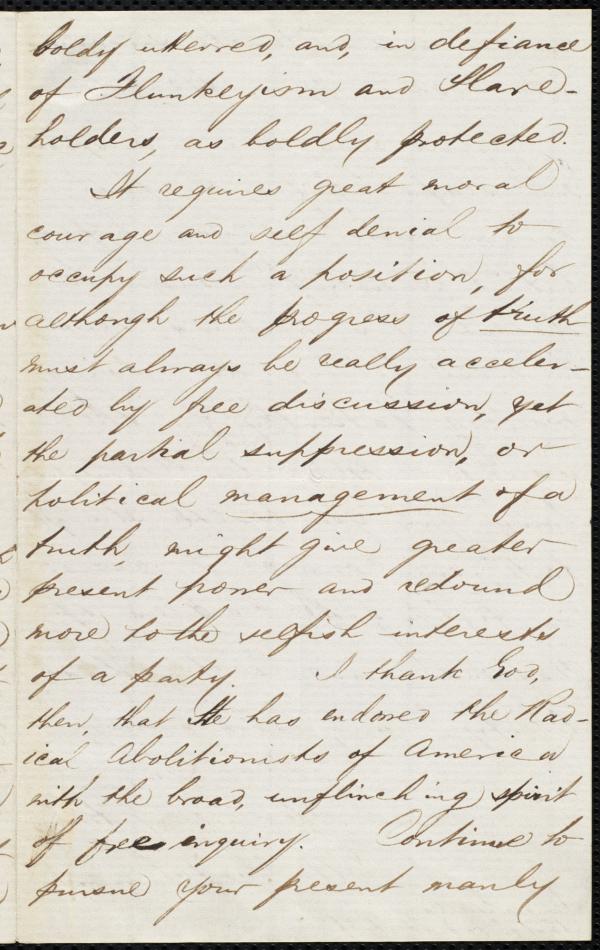 boldly utterred, and, in defiance
of Flunkeyism and Slave-
holders, as boldly protected.
It requires great moral
courage and self denial to
occupy such a position, for
although the progress of truth
must always be really acceler-
ated by free discussion, yet
the partial suppression, or
political management of a
truth, might give greater
present power and redound
more to the selfish interests
of a party. I thank God,
then, that He has endored the Rad-
ical Abolitionists of America
with the broad, unflinching spirit
of free inquiry. Continue to
pursue your present manly